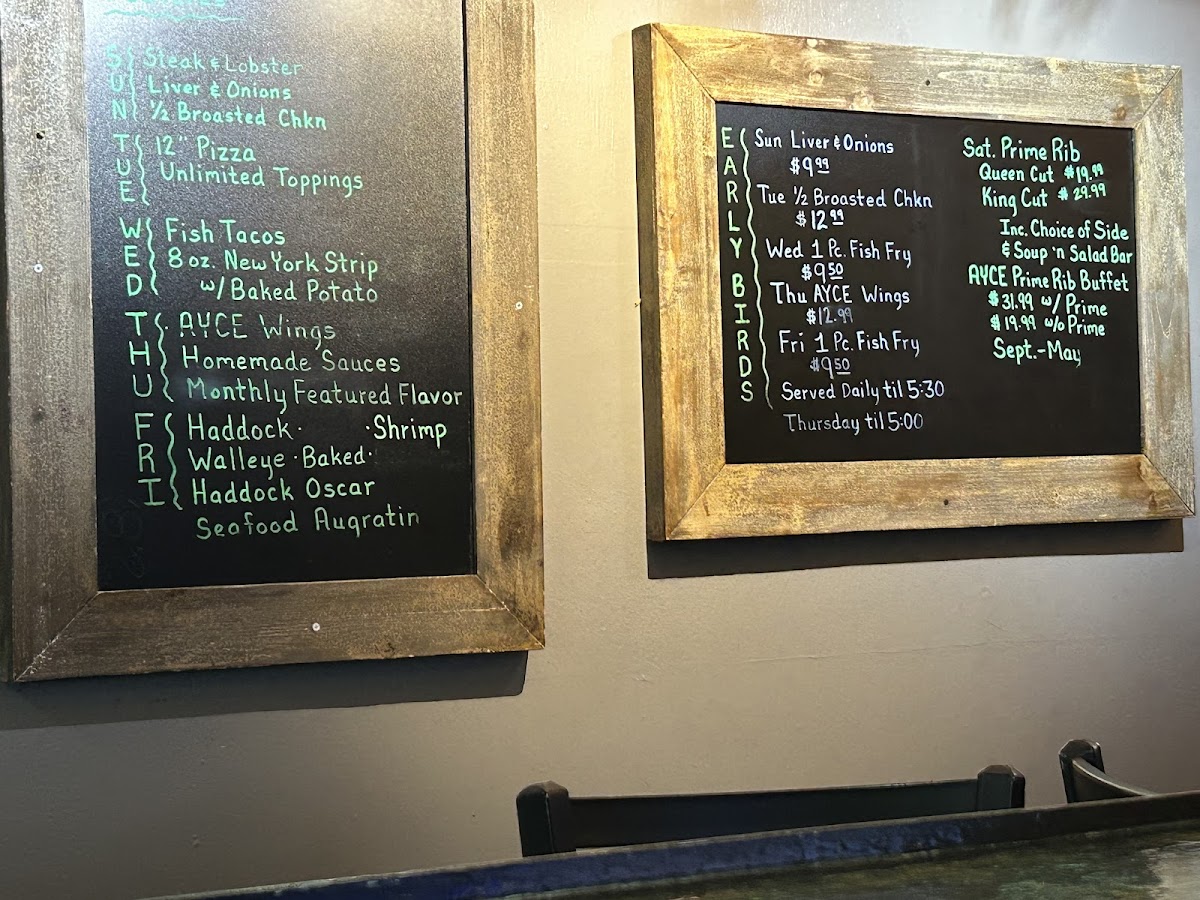 SUN
Steak & Lobster
Liver & Onions
½ Broasted Chkn
TUE
12" Pizza
Unlimited Toppings
WED
Fish Tacos
8 oz. New York Strip
w/ Baked Potato
THU
· AYCE Wings
Homemade Sauces
Monthly Featured Flavor
FRI
Haddock · · Shrimp
Walleye · Baked ·
Haddock Oscar
Seafood Augratin
EARLY BIRDS
Sun Liver & Onions
$9.99
Tue ½ Broasted Chkn
$12.99
Wed 1 Pc. Fish Fry
$9.50
Thu AYCE Wings
$12.99
Fri 1 Pc. Fish Fry
$9.50
Served Daily til 5:30
Thursday til 5:00
Sat. Prime Rib
Queen Cut $19.99
King Cut $29.99
Inc. Choice of Side
& Soup 'n Salad Bar
AYCE Prime Rib Buffet
$31.99 w/ Prime
$19.99 w/o Prime
Sept.-May